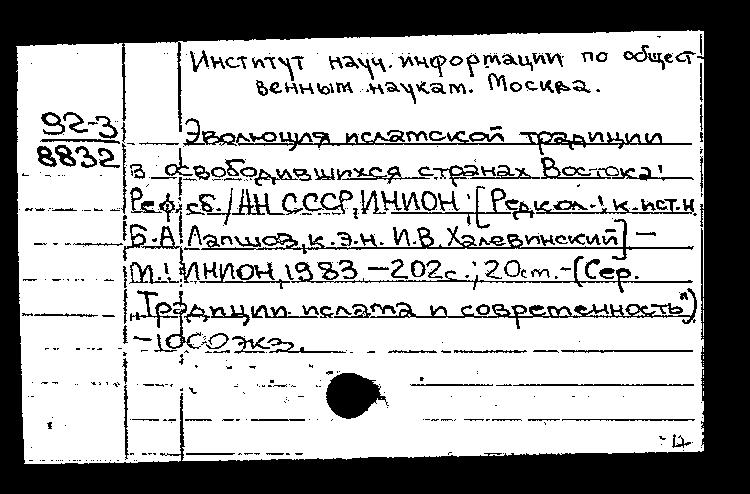 Институт науч. информации по общест-
венным наукам. Москва.
92-3
8832
Эволюция исламской традиции
в освободившихся странах Востока:
Реф. сб./АН СССР, ИНИОН; [Редкол.: к.ист.н.
Б.А. Лапшов, к.э.н. И.В. Халевинский] –
М.: ИНИОН, 1983 – 202с.; 20см. – (Сер.
"Традиции ислама и современность")
– 1000 экз.